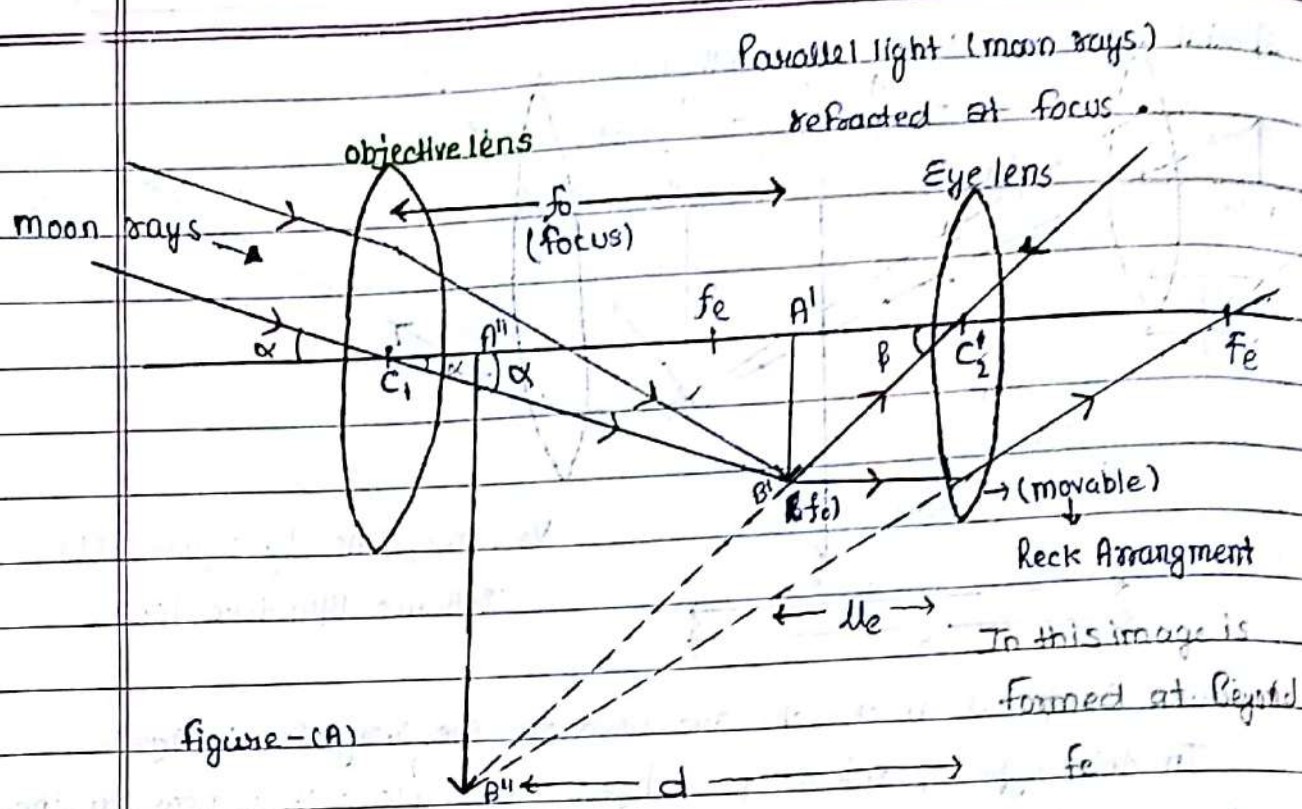 Parallel light (moon rays)
refracted at focus .
objective lens
Eye lens
fo
(focus)
moon rays
fe
A'
A"
α
α
α
C1
β
C2
fe
B'
(fe)
→ (movable)
Reck Arrangment
Ue
In this image is
formed at Beyond
fe
figure-(A)
B"
d